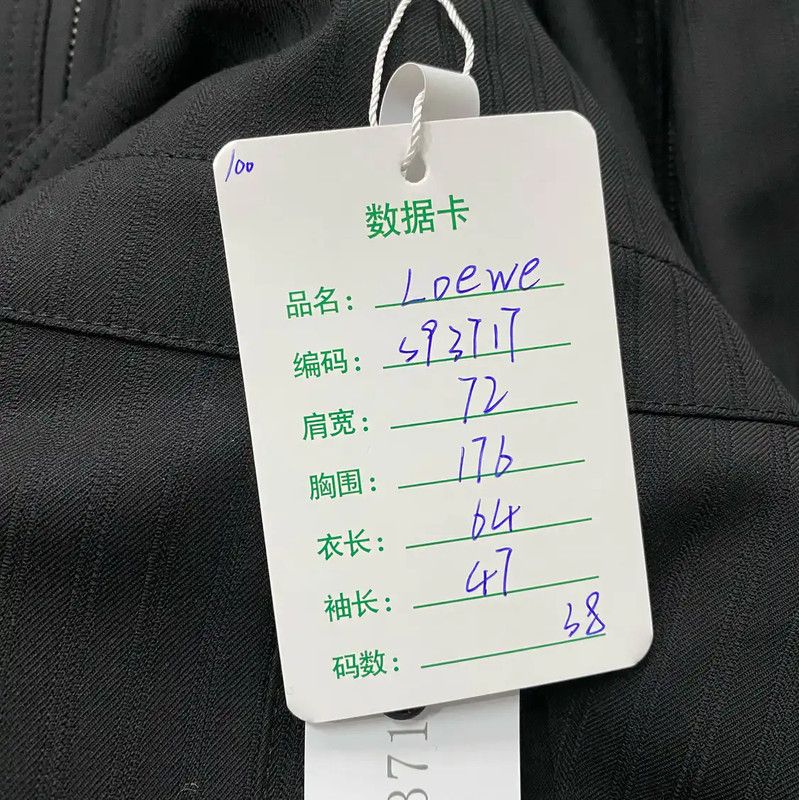 100
数据卡
品名: Loewe
编码: 593717
肩宽: 72
胸围: 176
衣长: 64
袖长: 47
码数: 38
871